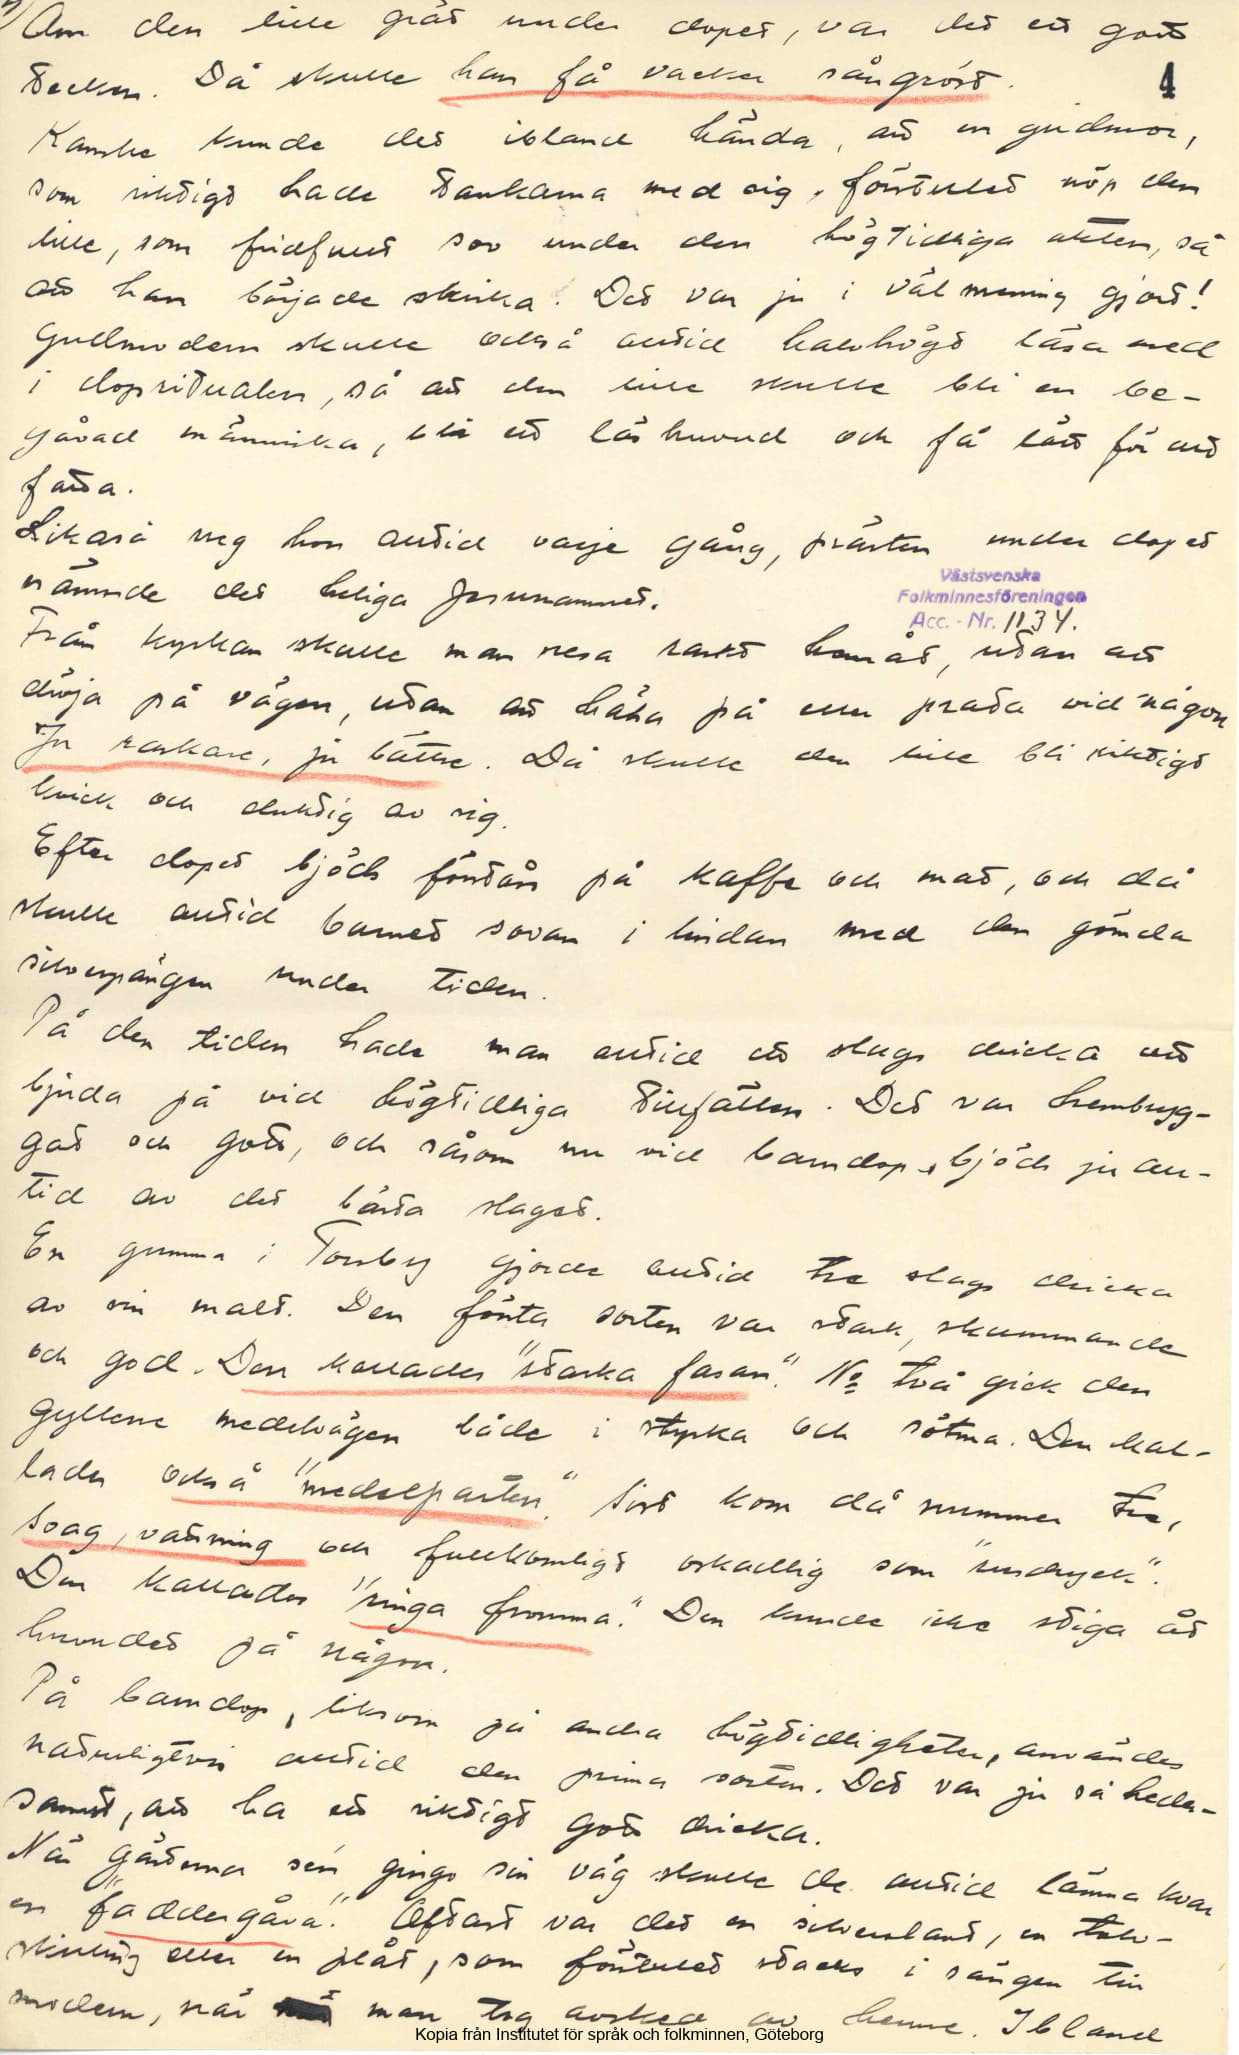 Om den lille grät under dopet, var det ett gott
4
tecken. Då skulle han få vacker sångröst.
Kanske kunde det ibland hända, att en gudmor,
som riktigt hade tankarna med sig, förstulet nöp den
lille, som fridfullt sov under den högtidliga akten, så
att han började skrika. Det var ju i väl mening gjort!
Gullmodern skulle också alltid halvhögt läsa med
i dopritualen, så att den lille skulle bli en be-
gåvad människa, bli ett läshuvud och få lätt för att
fatta.
Likaså neg hon alltid varje gång, prästen under dopet
nämnde det heliga Jesunamnet.
Västsvenska
Folkminnesföreningen
Acc. - Nr. 1134.
Från kyrkan skulle man resa raskt hemåt, utan att
dröja på vägen, utan att hälsa på eller prata vid någon
Ju raskare, ju bättre. Då skulle den lille bli riktigt
kvick och duktig av sig.
Efter dopet bjöds förstås på kaffe och mat, och då
skulle alltid barnet sovan i lindan med den gömda
silverpängen under tiden.
På den tiden hade man alltid ett slags dricka att
bjuda på vid högtidliga tillfällen. Det var hembryg-
gat och gott, och såsom nu vid barndop, bjöds ju all-
tid av det bästa slaget.
En gumma i Torsby gjorde alltid tre slags dricka
av sin malt. Den första sorten var stark, skummande
och god. Den kallades "starka fasan". No två gick den
gyllene medelvägen både i styrka och sötma. Den kal-
lades också "medelparten". Sist kom då nummer tre,
svag, vattning och fullkomligt oskadlig som "rusdryck".
Den kallades "ringa fromma." Den kunde icke stiga åt
huvudet på någon.
På barndop, liksom på andra högtidligheter, användes
naturligtvis alltid den prima sorten. Det var ju så heder-
samt, att ha ett riktigt gott dricka.
När gästerna sen gingo sin väg skulle de alltid lämna kvar
en "faddergåva". Oftast var det en silverslant, en tolv-
skilling eller en plåt, som förstulet stacks i sängen till
modern, när man tog avsked av henne. Ibland
Kopia från Institutet för språk och folkminnen, Göteborg